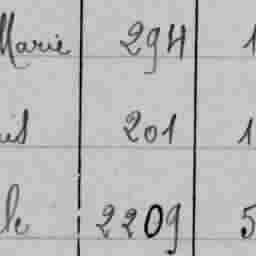 Marie 294 1
201 1
2209 5